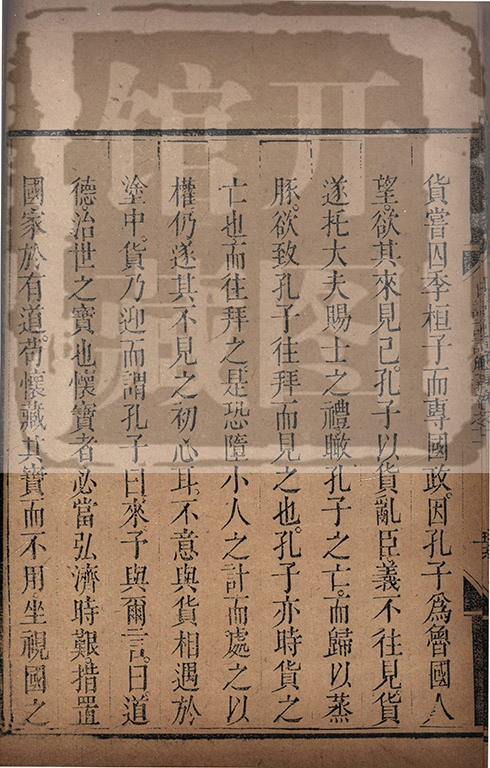 貨嘗囚季桓子而專國政。因孔子為魯國人
望。欲其來見己。孔子以貨亂臣義不往見。貨
遂托大夫賜士之禮瞰孔子之亡。而歸以蒸
豚。欲致孔子往拜而見之也。孔子亦時貨之
亡也而往拜之。是恐墮小人之計而處之以
權仍遂其不見之初心耳。不意與貨相遇於
塗中。貨乃迎而謂孔子曰。來予與爾言。曰。道
德。治世之寶也懷寶者必當弘濟時艱措置
國家於有道。苟懷藏其寶而不用坐視國之
开图
馆藏